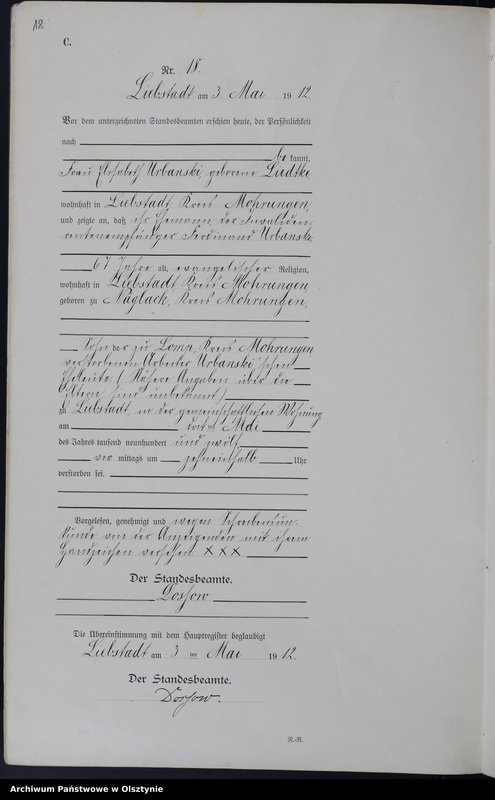 18
C.
Nr. 18.
Liebstadt am 3 Mai 1912.
Vor dem unterzeichneten Standesbeamten erschien heute, der Persönlichkeit
nach
be kannt,
Frau Elisabeth Urbanski geborene Liedtke
wohnhaft in Liebstadt, Kreis Mohrungen
und zeigte an, daß ihr Ehemann, der Invaliden-
rentenempfänger Ferdinand Urbanski,
67 Jahre alt, evangelischer Religion,
wohnhaft in Liebstadt Kreis Mohrungen
geboren zu Naglack, Kreis Mohrungen,
Sohn der zu Kreis Mohrungen
verstorbenen Arbeiter Urbanski'schen
Eheleute (Nähere Angaben über die
Eltern sind unbekannt)
zu Liebstadt, in der gemeinschaftlichen Wohnung
am Mai
des Jahres tausend neunhundert und zwölf
vor mittags um zehneinhalb Uhr
verstorben sei.
Vorgelesen, genehmigt und wegen Schreibensun-
kunde von der Anzeigenden mit ihrem
Handzeichen versehen. XXX
Der Standesbeamte.
Dossow
Die Übereinstimmung mit dem Hauptregister beglaubigt
Liebstadt am 3 ten Mai 1912.
Der Standesbeamte.
Dossow.
N.-R.
Archiwum Państwowe w Olsztynie